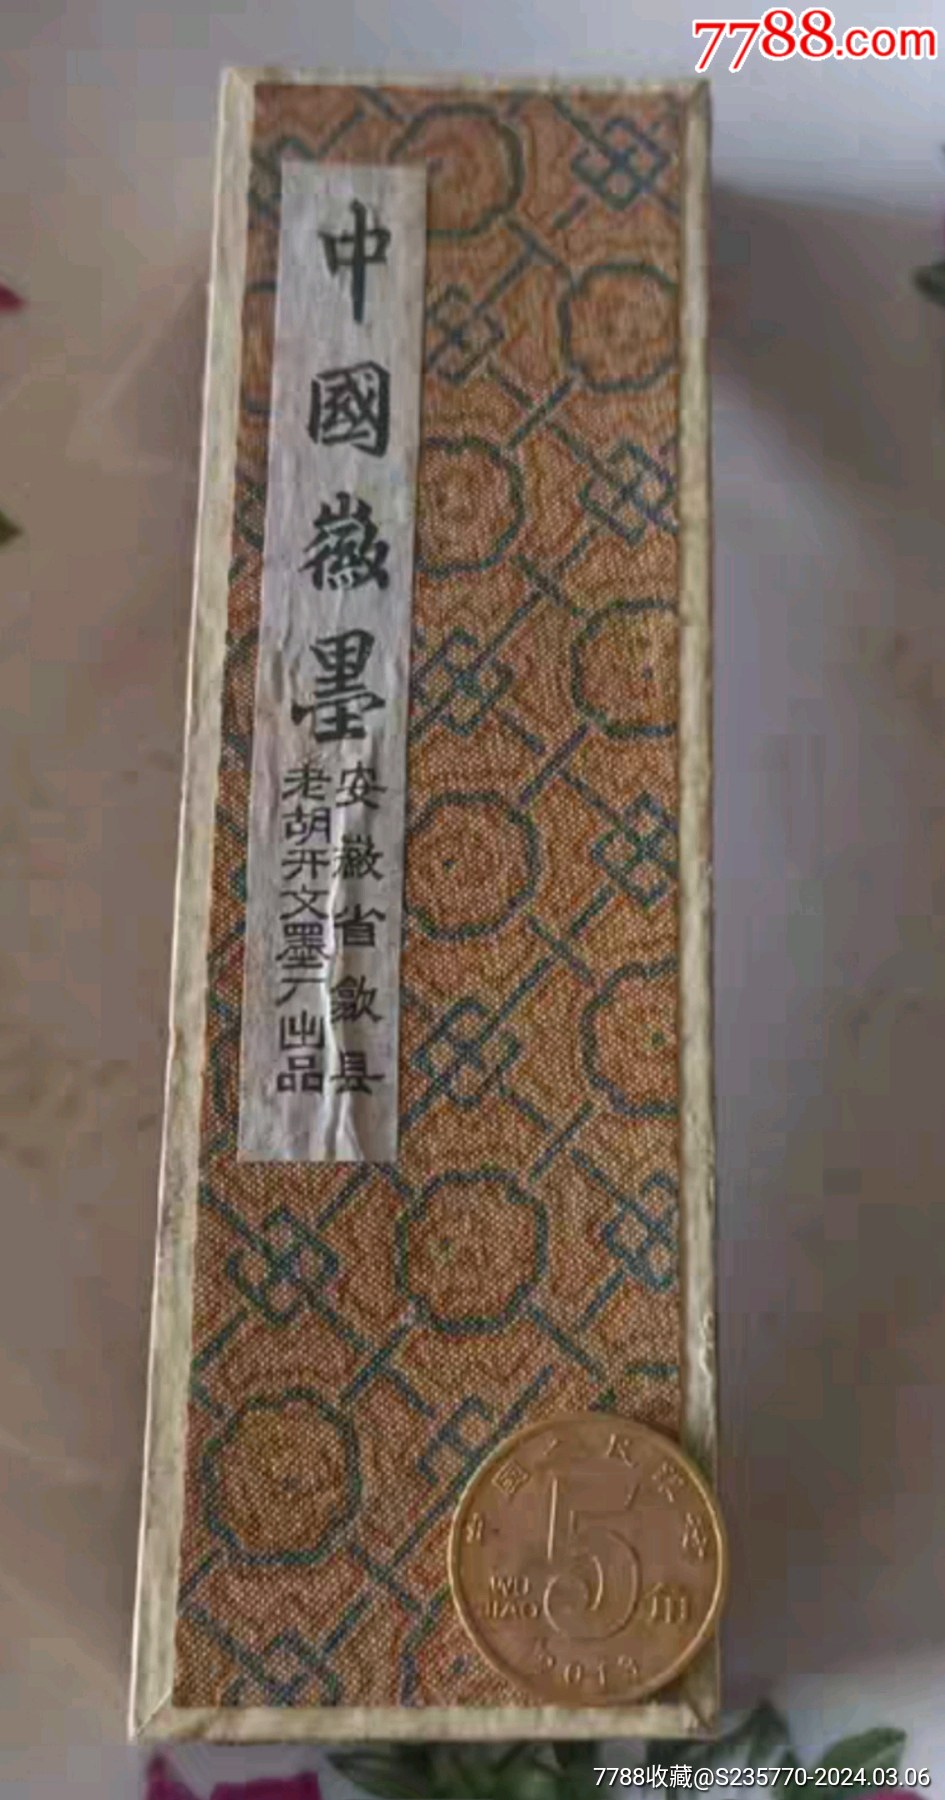 7788.com
中國徽墨
安徽省歙县
老胡开文墨厂出品
5角
WU
JIAO
2013
7788收藏@S235770-2024.03.06